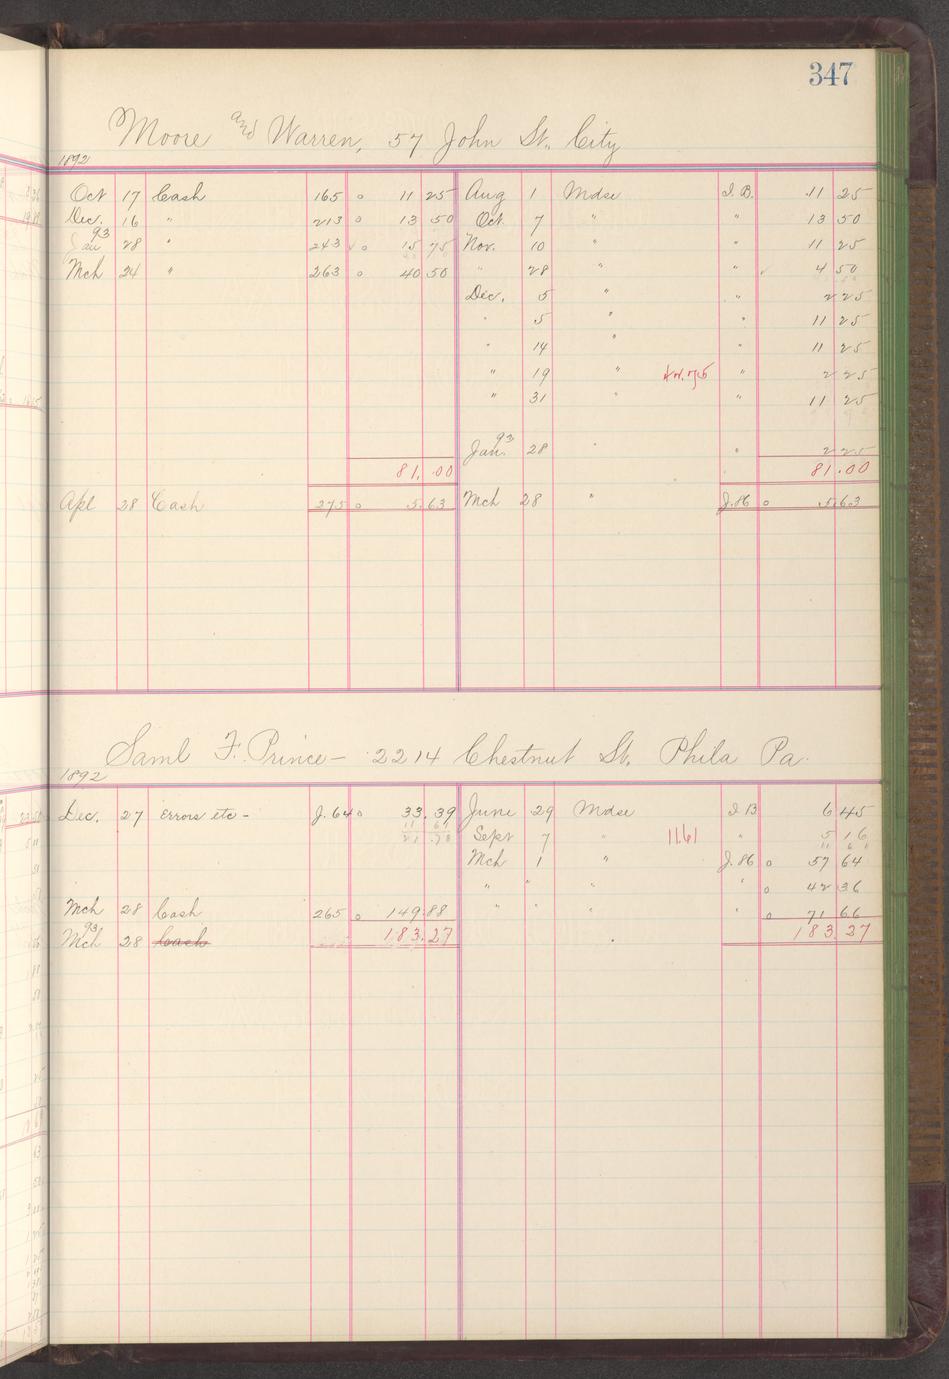 347
Moore and Warren, 57 John St. City
1892
Oct 17 Cash 165 o 11 25 Aug 1 Mdse I.B. 11 25
Dec. 16 " 213 o 13 50 Oct 7 " " 13 50
Jan 93 28 " 243 o 15 75 Nov. 10 " " 11 25
Mch 24 " 263 o 40 50 " 28 " " 4 50
Dec. 5 " " 2 25
" 5 " " 11 25
" 14 " " 11 25
" 19 " " 2 25
" 31 " " 11 25
Jan. 93 28 " " 2 25
81.00 81.00
Apl 28 Cash 275 o 5.63 Mch 28 " J.86 o 5.63
Saml F. Prince - 2214 Chestnut St. Phila Pa.
1892
Dec. 27 Errors etc - J.64 o 33.39 June 29 Mdse I B 6 45
Sept 7 " 11.61 " 5 16
Mch 1 " J.86 o 57 64
" " " " o 42 36
Mch 28 Cash 265 o 149.88 " " " " o 71 66
Mch 93 28 Cash 183.27 183 27